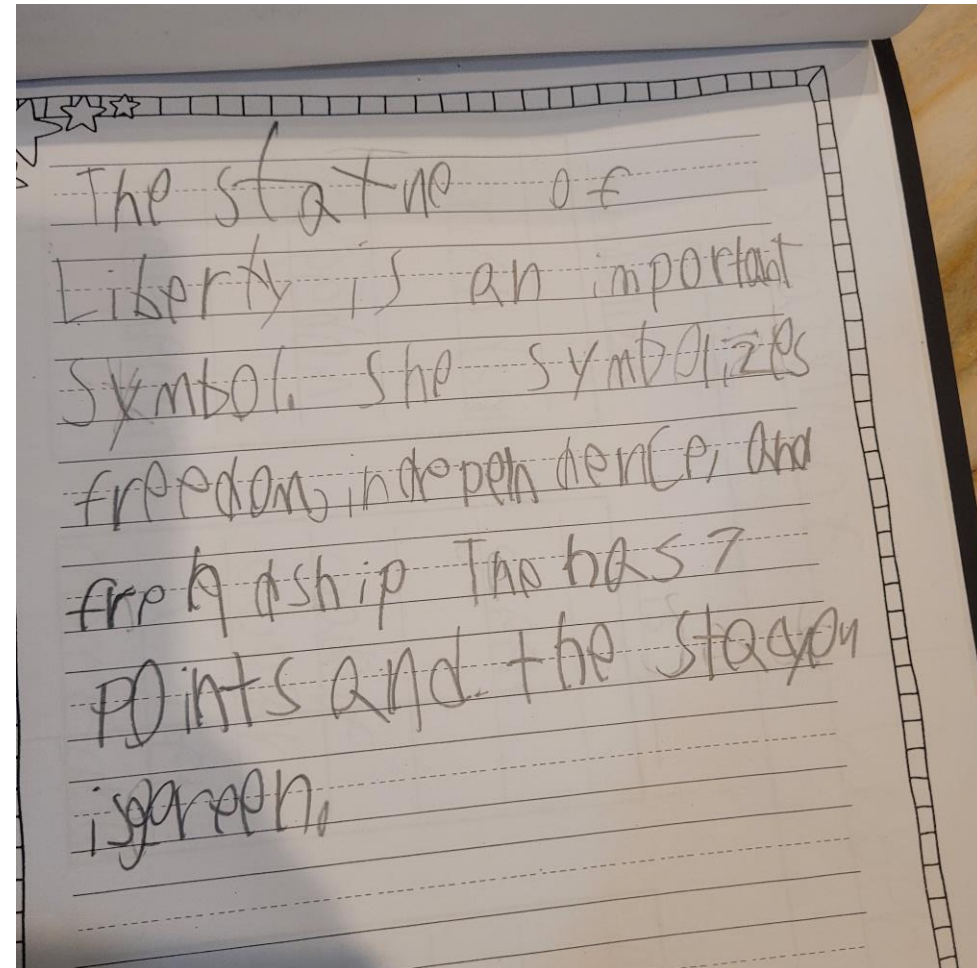 The statue of
Liberty is an important
Symbol. She symbolizes
freedom, independence, and
frendship The has 7
points and the
is green.